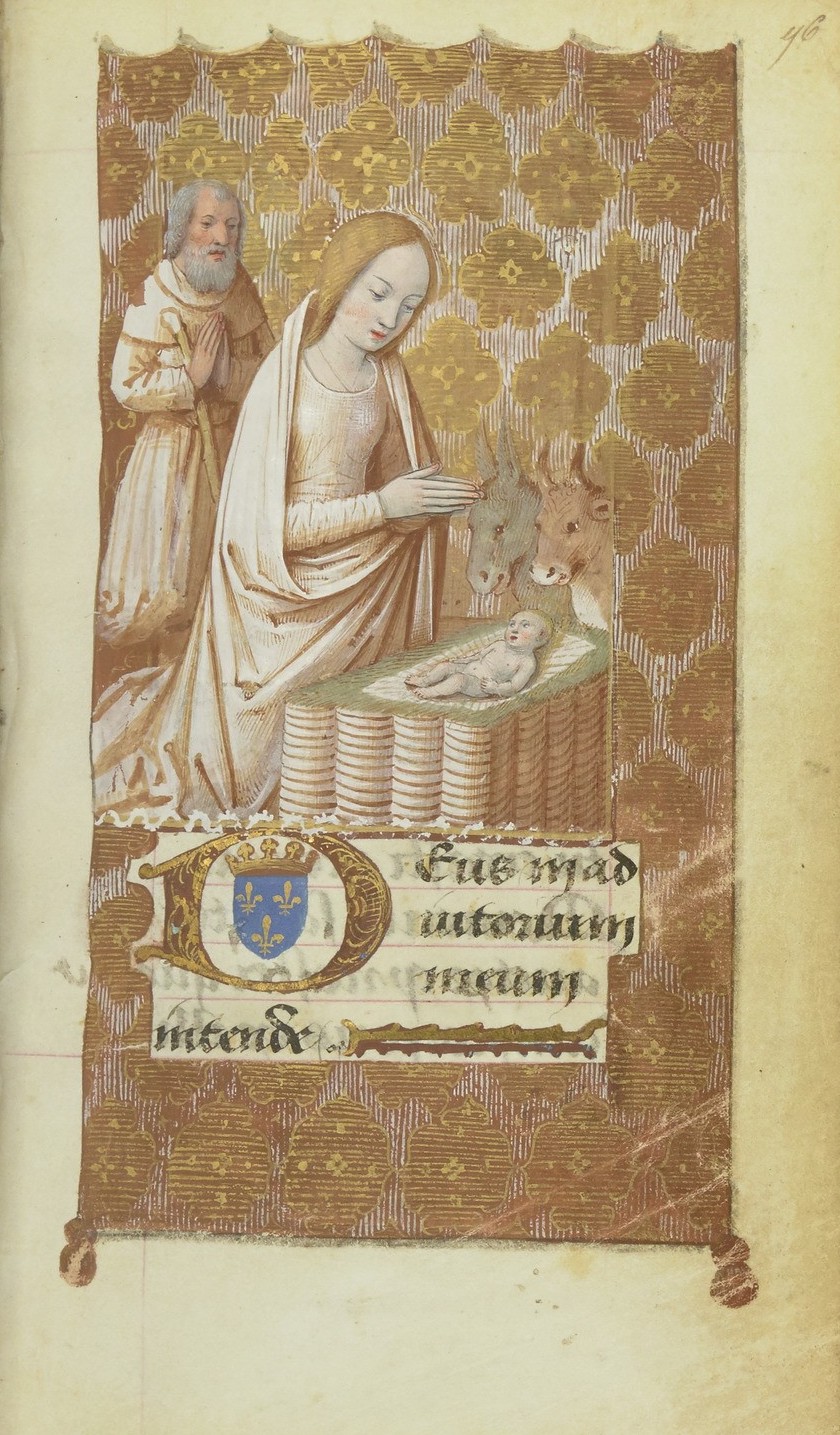 46
DEus in ad
iutorium
meum
intende.